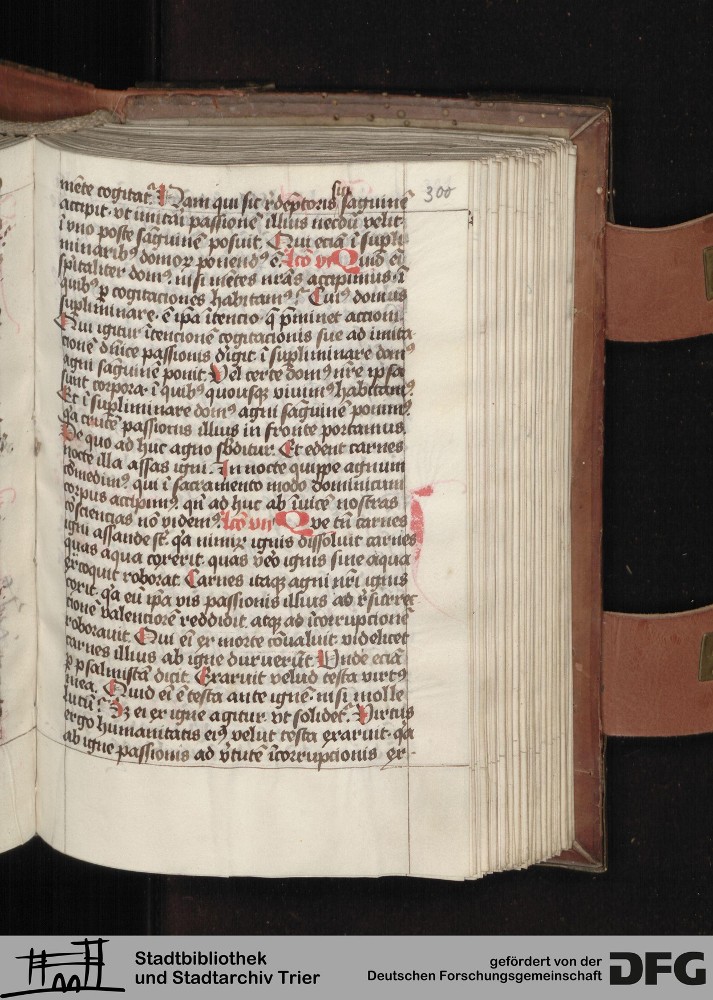 mēte cogitat᷑. Nam qui sic r̄dēptoris sui sāguinē
300
accipit. vt imitai passionē illius necdū velit.
ī vno poste sāguinē posuit. Qui eciā ī supli
minarib⁹ domoꝝ ponend⁹ ē. lc̄o vi Quid eī
spūaliter dom⁹. nisi mētes nr̄as accipimus. ī
quib⁹ ꝑ cogitaciones habitam⁹. Cui⁹ domus
supliminare. ē ip̄a ītencio. q̄ p̄minet actioni.
Qui igitur ītencionē cogitacionis sue ad imita
cionē dn̄ice passionis dirigit. ī supliminare dom⁹
agni sāguinē ponit. Vel certe dom⁹ nr̄e ip̄sa
sunt corpora. ī quib⁹ quousqꝫ viuim⁹ habitam⁹.
Et ī supliminare dom⁹ agni sāguinē ponim⁹.
q̄a crucē passionis illius in fronte portamus.
De quo ad huc agno sb̄ditur. Et edent carnes
nocte illa assas igni. In nocte quippe agnum
comedim⁹. qui ī sacramento modo dominicum
corpus accipim⁹. qn̄ ad huc ab īuicē nostras
cōsciencias nō videm⁹. lc̄o vii Que tn̄ carnes
igni assande st̄. q̄a nimiꝝ ignis dissoluit carnes
quas aqua coxerit. quas v̄o ignis sine aqua
excoquit roborat. Carnes itaqꝫ agni nr̄i ignis
coxit. q̄a eū ip̄a vis passionis illius ad r̄surrec
cionē valenciorē reddidit. atqꝫ ad īcorrupcionē
roborauit. Qui eī ex morte cōualuit videlicet
carnes illius ab igne duruerūt. Vnde eciā
ꝑ psalmistā dicit. Exaruit velud testa virt⁹
mea. Quid eī ē testa ante ignē. nisi molle
lutū. Sꝫ ei ex igne agitur. vt solidet᷑. Virtus
ergo humanitatis ei⁹ velut testa exaruit. q̄a
ab igne passionis ad v̄tutē īcorrupcionis ex-
Stadtbibliothek
und Stadtarchiv Trier
gefördert von der
Deutschen Forschungsgemeinschaft
DFG